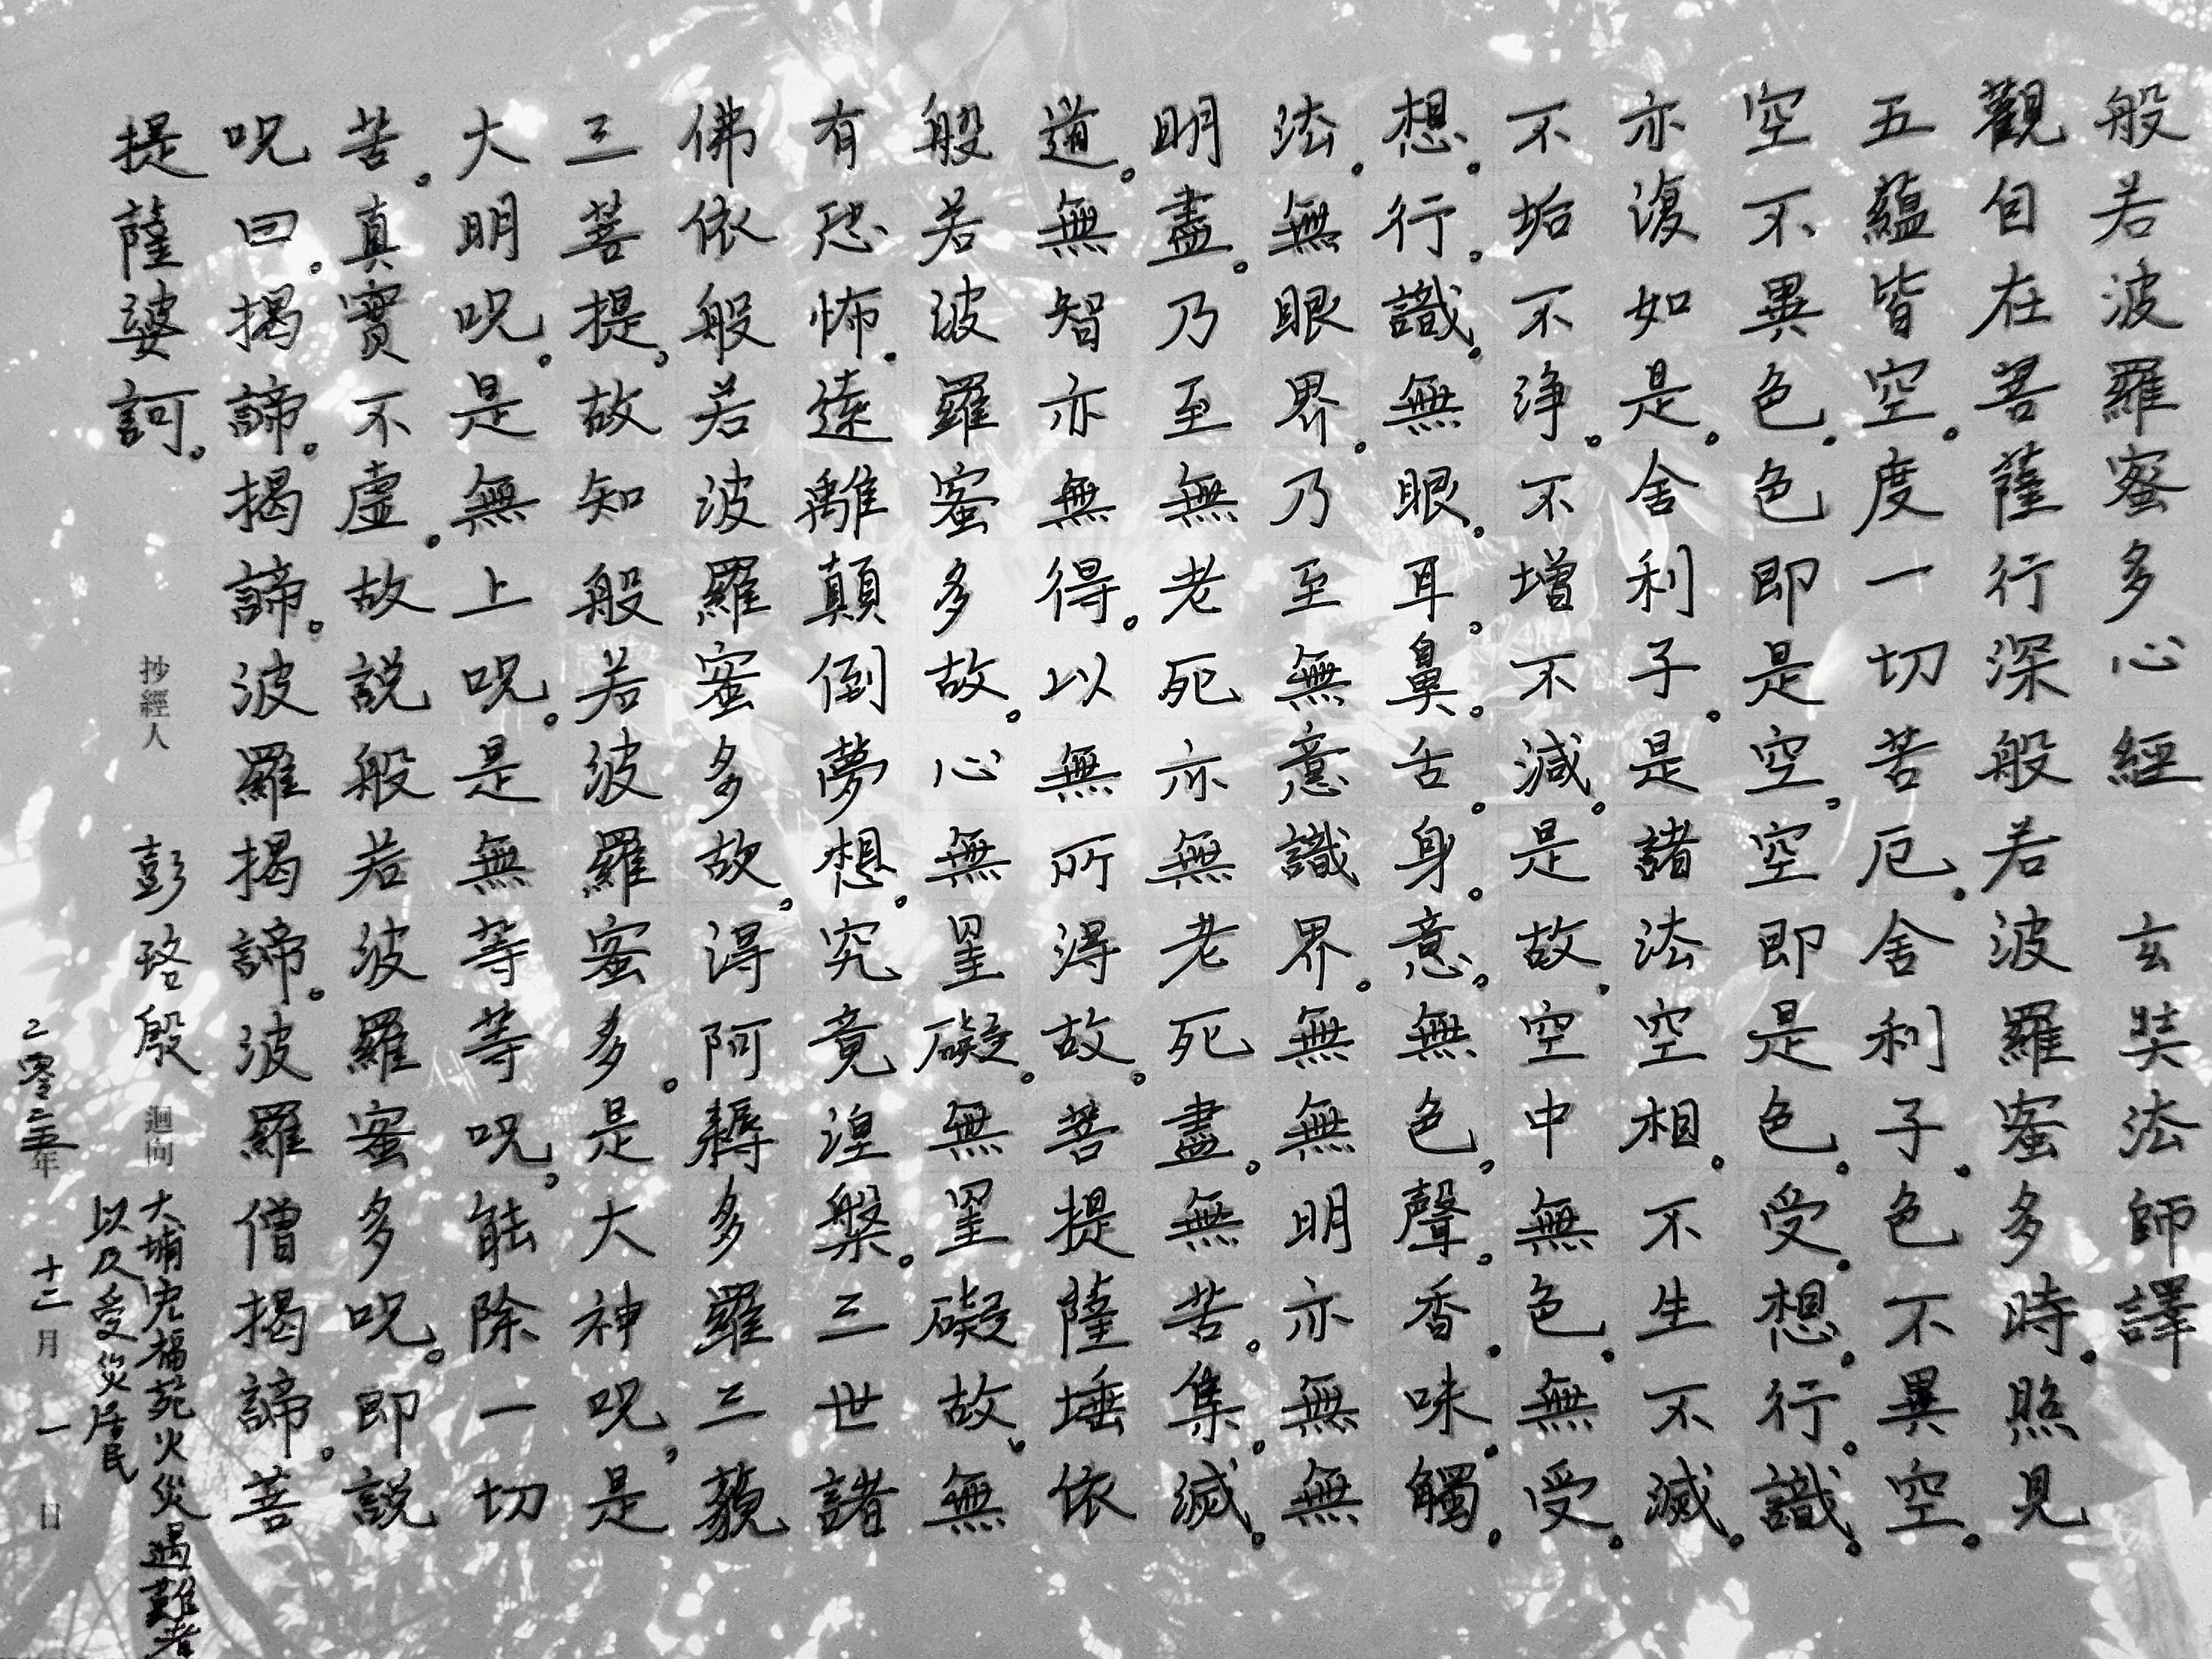 般若波羅蜜多心經 玄奘法師譯
觀自在菩薩行深般若波羅蜜多時。照見
五蘊皆空。度一切苦厄。舍利子。色不異空。
空不異色。色即是空。空即是色。受。想。行。識。
亦復如是。舍利子。是諸法空相。不生不滅。
不垢不淨。不增不減。是故。空中無色。無受。
想。行。識。無眼。耳。鼻。舌。身。意。無色。聲。香。味。觸。
法。無眼界。乃至無意識界。無無明亦無無
明盡。乃至無老死亦無老死盡。無苦。集。滅。
道。無智亦無得。以無所得故。菩提薩埵依
般若波羅蜜多故。心無罣礙。無罣礙故。無
有恐怖。遠離顛倒夢想。究竟涅槃。三世諸
佛依般若波羅蜜多故。得阿耨多羅三藐
三菩提。故知般若波羅蜜多。是大神呪。是
大明呪。是無上呪。是無等等呪。能除一切
苦。真實不虛。故説般若波羅蜜多呪。即説
呪曰。揭諦。揭諦。波羅揭諦。波羅僧揭諦。菩
提薩婆訶。
抄經人 彭珞殷 迴向 大埔宏福苑火災遇難者
以及受災居民
二零二五年 十二月 一日